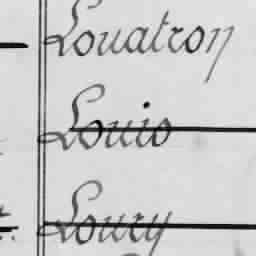 Louatron
Louio
Loury